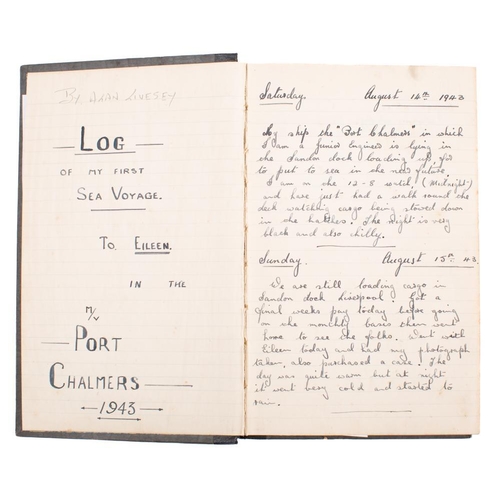 By Alan Livesey
LOG
OF MY FIRST
SEA VOYAGE.
TO EILEEN.
IN THE
M/V
PORT
CHALMERS
1943
Saturday. August 14th 1943
My ship the "Port Chalmers" in which
I am a Junior Engineer is lying in
the Sandon dock loading up, for
to put to sea in the near future.
I am on the 12-8 watch, (Midnight)
and have just had a walk round the
deck watching cargo being stowed down
in the hatches. The night is very
black and also chilly.
Sunday. August 15th 43.
We are still loading cargo in
Sandon dock Liverpool. Got a
final weeks pay today before going
on the monthly basis then went
home to see the folks. Went with
Eileen today and had my photograph
taken, also purchased a case. The
day was quite warm but at night
it went very cold and started to
rain.